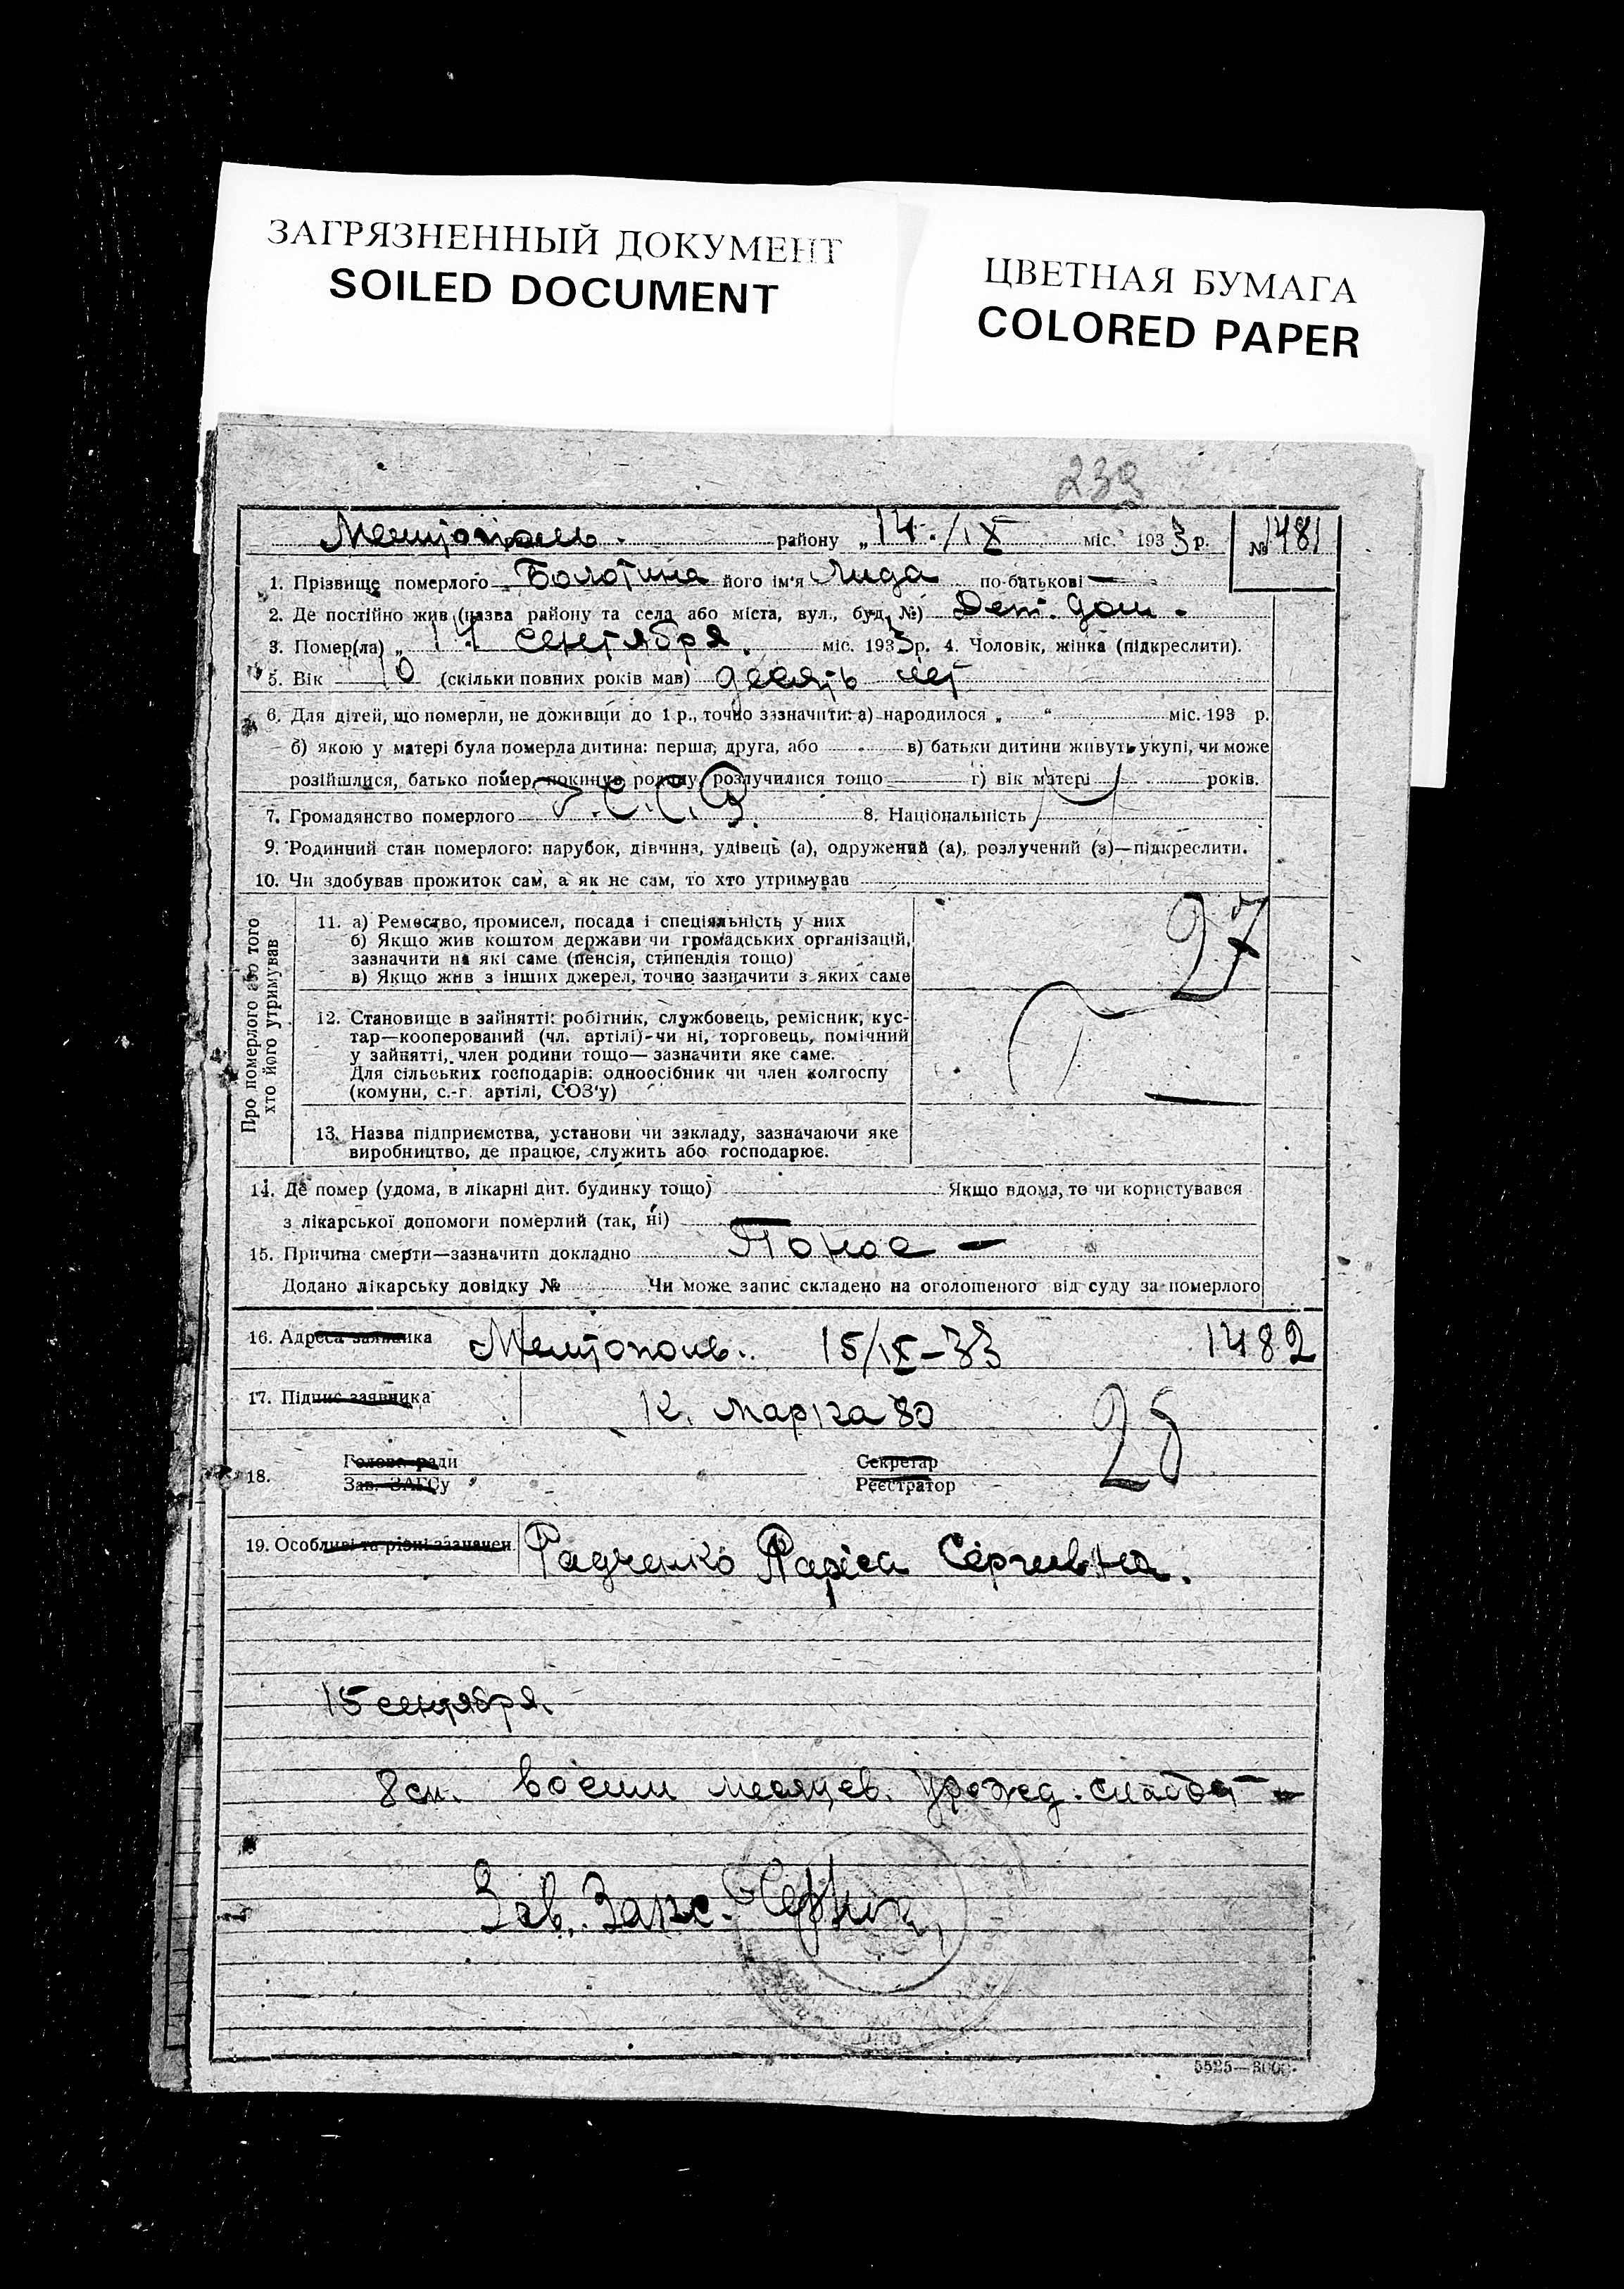 ЗАГРЯЗНЕННЫЙ ДОКУМЕНТ
SOILED DOCUMENT
ЦВЕТНАЯ БУМАГА
COLORED PAPER
239
Мелитополь. району „14./IX міс. 1933 р. № 1481
1. Прізвище померлого Болотина його ім'я Лида по-батькові —
2. Де постійно жив (назва району та села або міста, вул., буд. №) Дет. дом.
3. Помер(ла) „14 сентября. міс. 1933 р. 4. Чоловік, жінка (підкреслити).
5. Вік 10 (скільки повних років мав) десять лет
6. Для дітей, що померли, не доживши до 1 р., точно зазначити: а) народилося „ “ міс. 193 р.
б) якою у матері була померла дитина: перша, друга, або в) батьки дитини живуть укупі, чи може
розійшлися, батько помер, покинув родину, розлучилися тощо г) вік матері років.
7. Громадянство померлого 8. Національність
9. Родинний стан померлого: парубок, дівчина, удівець (а), одружений (а), розлучений (а)—підкреслити.
10. Чи здобував прожиток сам, а як не сам, то хто утримував
Про померлого або того
хто його утримував
11. а) Ремество, промисел, посада і спеціяльність у них
б) Якщо жив коштом держави чи громадських організацій,
зазначити на які саме (пенсія, стипендія тощо)
в) Якщо жив з інших джерел, точно зазначити з яких саме
27
12. Становище в зайнятті: робітник, службовець, ремісник, кус-
тар—кооперований (чл. артілі)-чи ні, торговець, помічний
у зайнятті, член родини тощо— зазначити яке саме.
Для сільських господарів: одноосібник чи член колгоспу
(комуни, с.-г. артілі, СОЗ'у)
13. Назва підприємства, установи чи закладу, зазначаючи яке
виробництво, де працює, служить або господарює.
14. Де помер (удома, в лікарні дит. будинку тощо) Якщо вдома, то чи користувався
з лікарської допомоги померлий (так, ні) —
15. Причина смерти—зазначити докладно Понос —
Додано лікарську довідку № Чи може запис складено на оголошеного від суду за померлого
16. Адреса заявника Мелитополь. 15/IX-33 1482
17. Підпис заявника К. Маркса 80
28
18. Голова ради Секретар
Зав. ЗАГСу Реєстратор
19. Особливі та різні зазначен. Радченко Лариса Сергиевна.
15 сентября.
8 см. восьми месяцев. урожд. слабость
Зав. Загс.
5525—3000